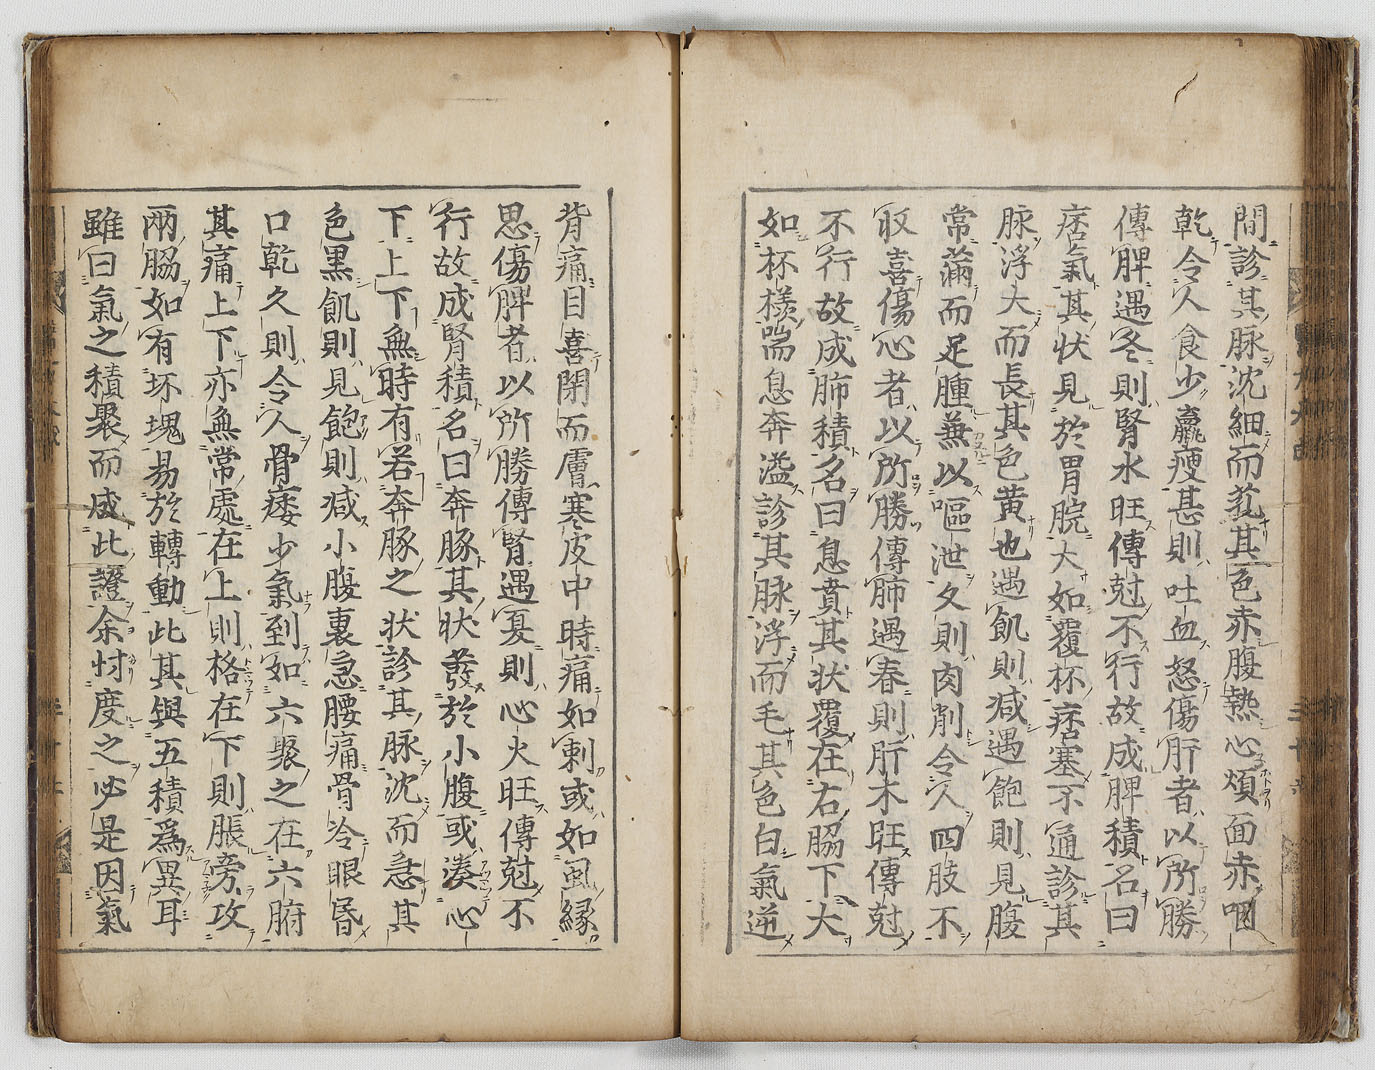 間診其脉沈細而芤其色赤腹熱心煩面赤咽
乾令人食少羸瘦甚則吐血怒傷肝者以所勝
傳脾遇冬則腎水旺傳尅不行故成脾積名曰
痞氣其状見於胃脘大如覆杯痞塞不通診其
脉浮大而長其色黄也遇飢則减遇飽則見腹
常滿而足腫兼以嘔泄久則肉削令人四肢不
収喜傷心者以所勝傳肺遇春則肝木旺傳尅
不行故成肺積名曰息賁其状覆在右脇下大
如杯様喘息奔溢診其脉浮而毛其色白氣逆
背痛目喜閉而膚寒皮中時痛如刺或如虱縁
思傷脾者以所勝傳腎遇夏則心火旺傳尅不
行故成腎積名曰奔豚其状發於小腹或湊心
下上下無時有若奔豚之状診其脉沈而急其
色黒飢則見飽則减小腹裏急腰痛骨冷眼昏
口乾久則令人骨痿少氣到如六聚之在六腑
其痛上下亦無常處在上則格在下則脹旁攻
兩脇如有坏塊易於轉動此其與五積為異耳
雖曰氣之積聚而成此證余忖度之必是因氣